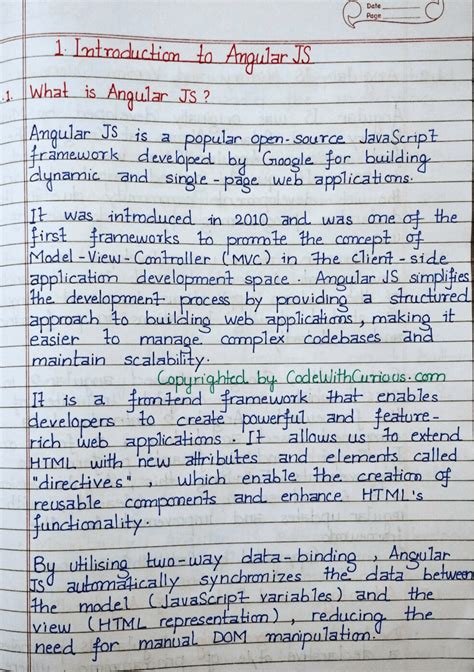 Date
Page
1. Introduction to Angular JS
.1. What is Angular JS?
Angular JS is a popular open-source JavaScript
framework developed by Google for building
dynamic and single-page web applications.
It was introduced in 2010 and was one of the
first frameworks to promote the concept of
Model-View-Controller (MVC) in the client-side
application development space. Angular JS simplifies
the development process by providing a structured
approach to building web applications, making it
easier to manage complex codebases and
maintain scalability.
Copyrighted by CodeWithCurious.com
It is a frontend framework that enables
developers to create powerful and feature-
rich web applications. It allows us to extend
HTML with new attributes and elements called
"directives", which enable the creation of
reusable components and enhance HTML's
functionality.
By utilising two-way data-binding, Angular
JS automatically synchronizes the data between
the model (JavaScript variables) and the
view (HTML representation), reducing the
need for manual DOM manipulation.